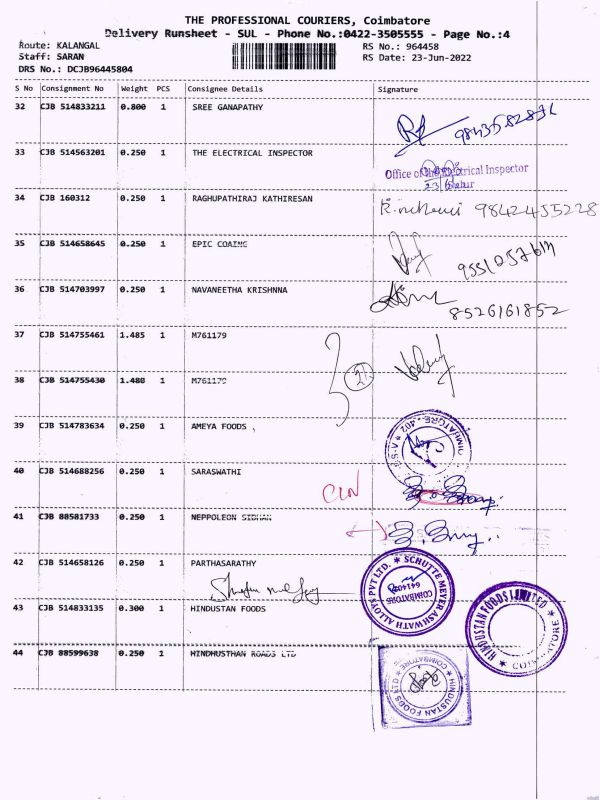 THE PROFESSIONAL COURIERS, Coimbatore
Delivery Runsheet - SUL - Phone No.:0422-3505555 - Page No.:4
Route: KALANGAL RS No.: 964458
Staff: SARAN RS Date: 23-Jun-2022
DRS No.: DCJB96445804
S No Consignment No Weight PCS Consignee Details Signature
32 CJB 514833211 0.800 1 SREE GANAPATHY
33 CJB 514563201 0.250 1 THE ELECTRICAL INSPECTOR
Office of the Electrical Inspector
34 CJB 160312 0.250 1 RAGHUPATHIRAJ KATHIRESAN
9842455228
35 CJB 514658645 0.250 1 EPIC COAING
36 CJB 514703997 0.250 1 NAVANEETHA KRISHNNA
8526161852
37 CJB 514755461 1.485 1 M761179
38 CJB 514755430 1.480 1 M761179
39 CJB 514783634 0.250 1 AMEYA FOODS ,
40 CJB 514688256 0.250 1 SARASWATHI
41 CJB 88581733 0.250 1 NEPPOLEON SIBHAN
42 CJB 514658126 0.250 1 PARTHASARATHY
SCHUTTE MEYER ASHWATH ALLOYS PVT LTD. COIMBATORE
43 CJB 514833135 0.300 1 HINDUSTAN FOODS
HINDUSTAN FOODS LIMITED COIMBATORE
44 CJB 88599638 0.250 1 HINDHUSTHAN ROADS LTD
HINDUSTAN FOODS LTD COIMBATORE